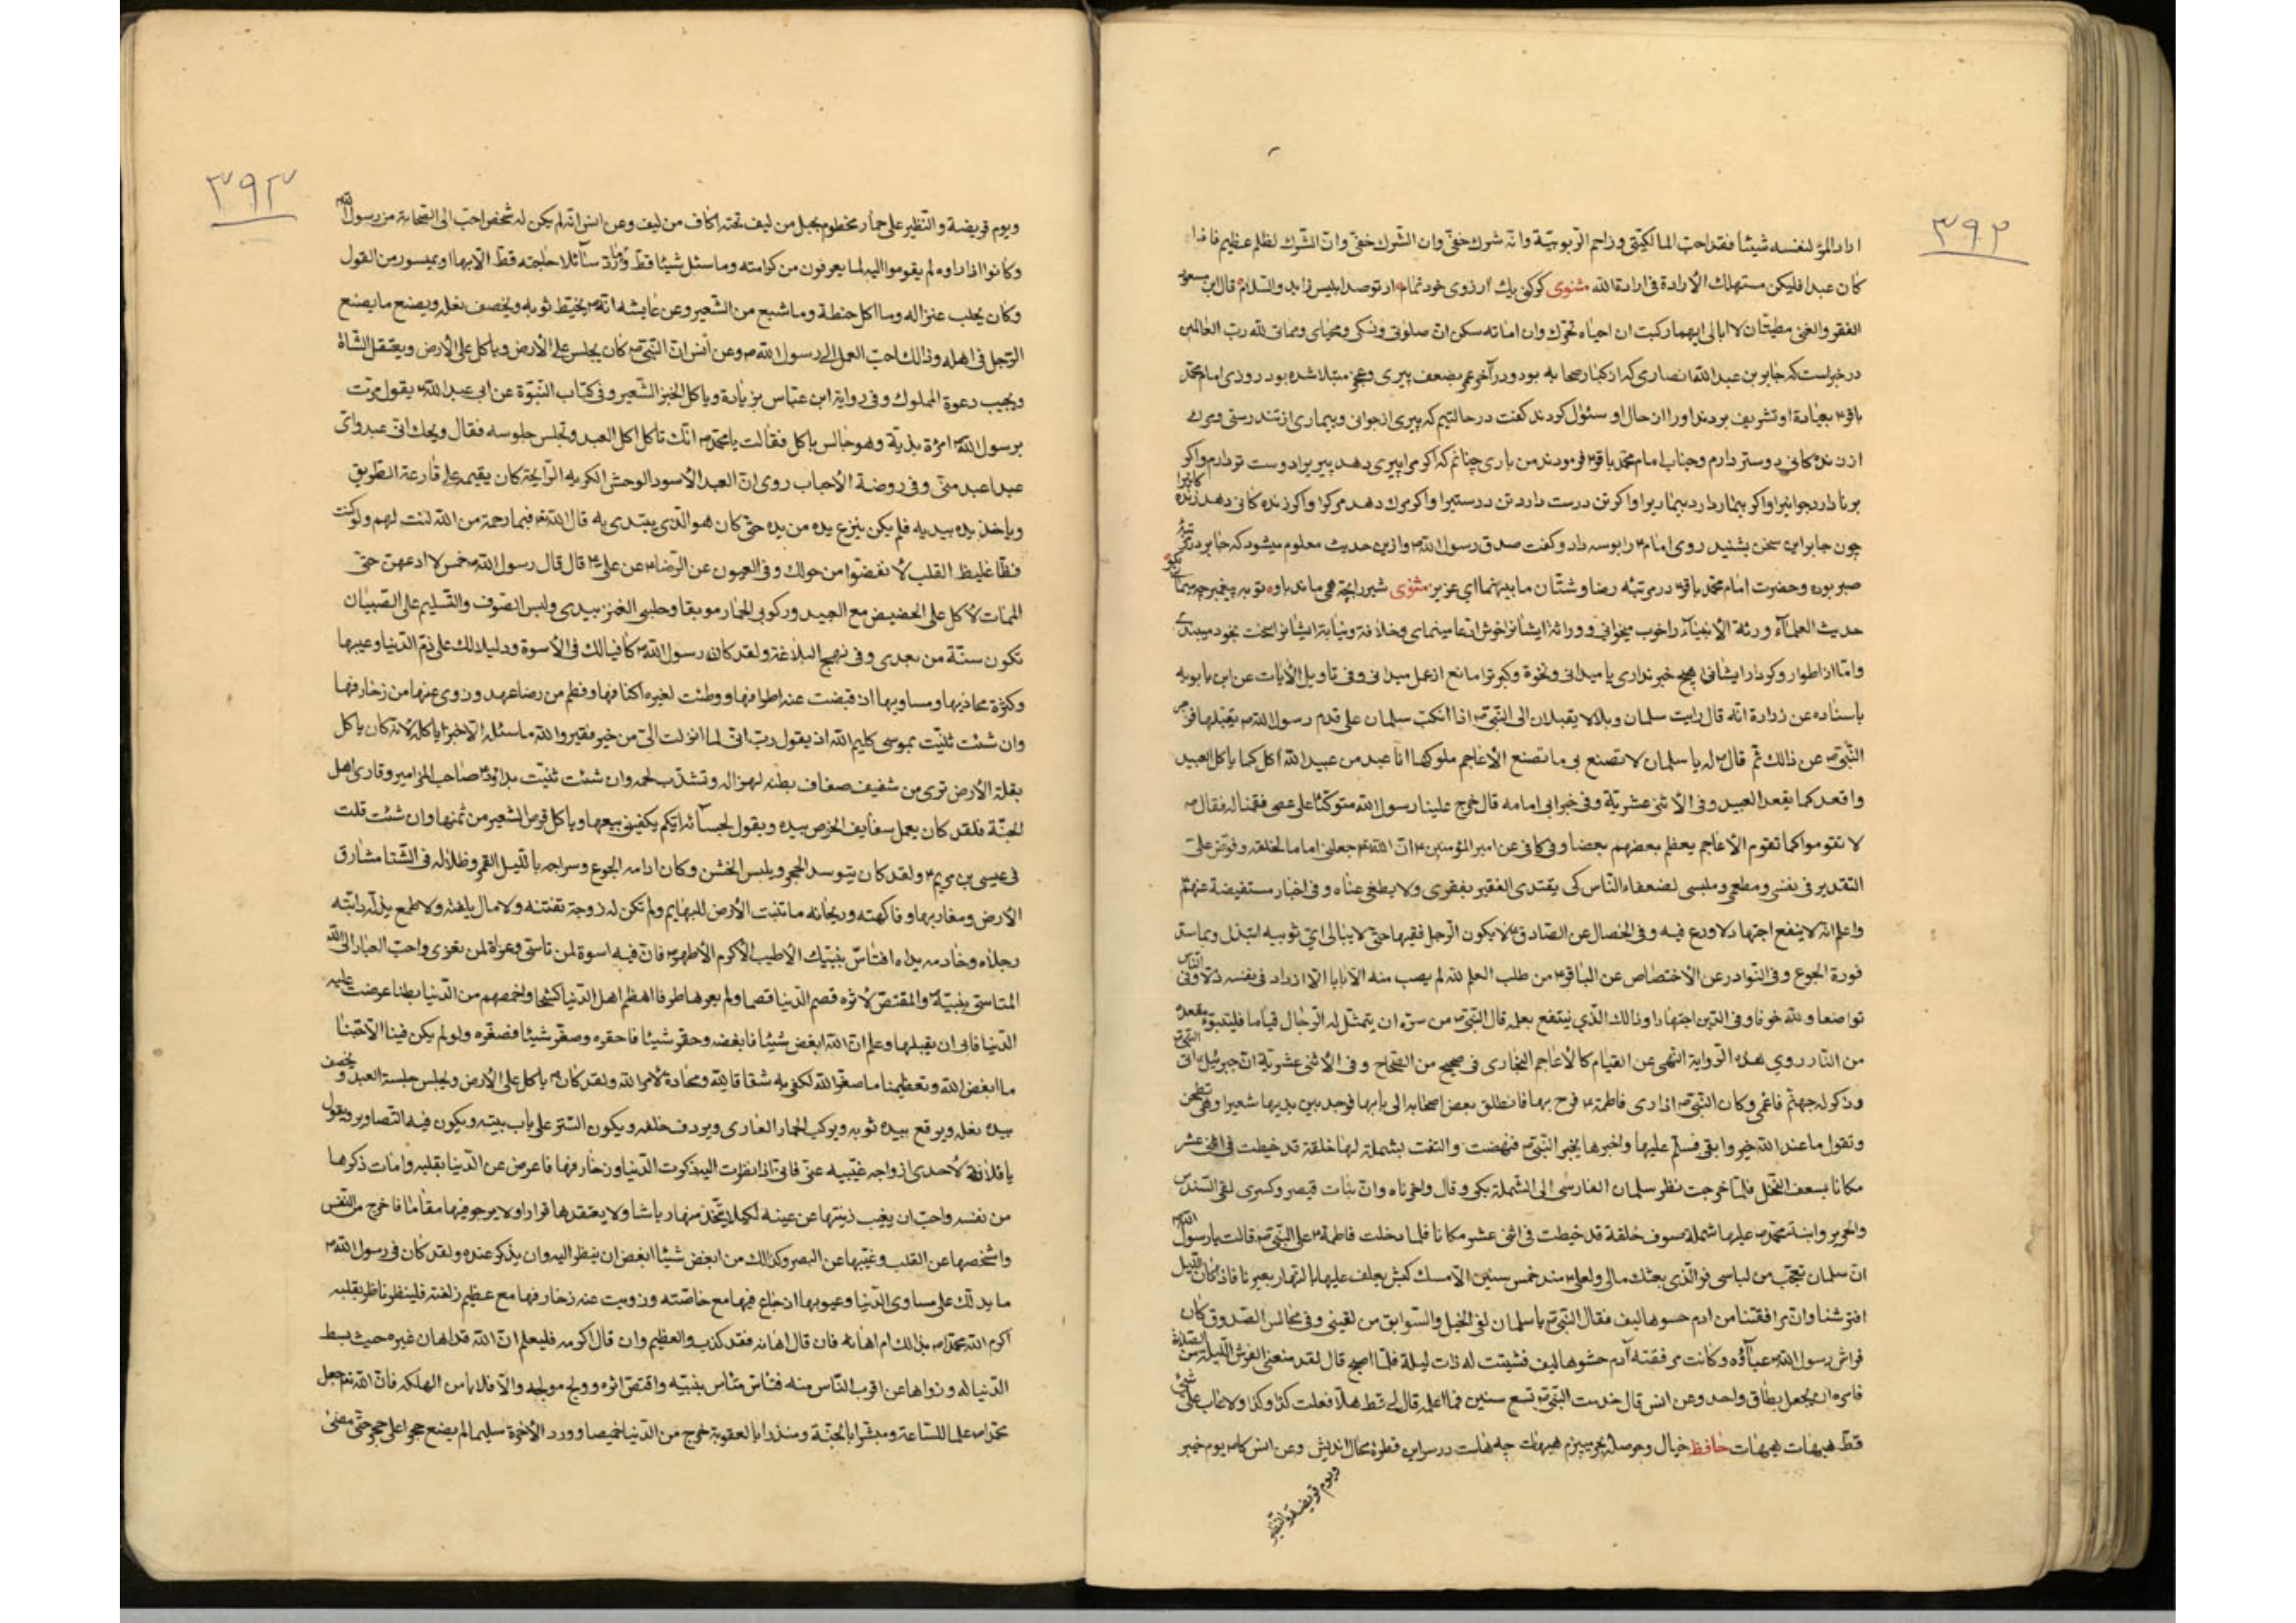 ۳۹۲
اراد المرؤ لنفسه شيئا فقد احب المالكيّتى وزاحم الربوبيّة وانّه شرك خفىّ وان الشّرك خفىّ وانّ الشّرك لظلم عظيم فاذا
كان عبدا فليكن مستهلك الأرادة فى ارادة الله مثنوى كر كنى يك آرزوى خود تمام در توصد ابليس زايد والسّلام قال ابن مسعود
الفقر والغنى مطيّتان لا ابالى ايهما ركبت ان احياه تحرّك وان اماته سكن انّ صلوتى ونسكى ومحياى ومماتى لله ربّ العالمين
در خبر است كه جابر بن عبد الله انصارى كه از كبار صحابه بود ودر آخر عمر بضعف پيرى وعجز مبتلا شده بود روزى امام محمّد
باقر ع بعيادة او تشريف بردند اورا از حال او سئوال كردند كفت در حالتيم كه پيرى از جوانى وبيمارى از تندرستى ومرك
از زندكانى دوستر دارم وجناب امام محمّد باقر ع فرمودند من بارى چنانم كه اكر مرا پيرى دهد پيريرا دوست تو دارم واكر
برنا دارد جوانيرا واكر بيمار دارد بيماريرا واكر تن درست دارد تن درستيرا واكر مرك دهد مركرا واكر زنده كانى دهد زنده
كانيرا
چون جابر اين سخن بشنيد روى امام ع را بوسه داد وكفت صدق رسول الله ص وازين حديث معلوم ميشود كه جابر در مرتبۀ
صبر بوده وحضرت امام محمّد باقر ع در مرتبه رضا وشتّان ما بينهما اى عزيز مثنوى شير را بچّه همى ماند باو تو به پيغمبر چه ميمانى بكو
حديث العلماء ورثة الأنبياء را خوب ميخوانى ووراثة ايشانرا خوش ادّعا مينماى وخلافة ونيابة ايشانرا سخت بخود ميبندى
وامّا از اطوار وكردار ايشان هيچ خبر ندارى يا ميدانى ونخوة وكبر ترا مانع از عمل ميدانى وفى تاويل الأيات عن ابن بابويه
باسناده عن زرارة انّه قال رايت سلمان وبلالا يقبلان الى النّبى ص اذا انكبّ سلمان على قدم رسول الله ص يقبّلها فزجره
النّبى ص عن ذالك ثمّ قال ص له يا سلمان لا تصنع بى ما تصنع الأعاجم ملوكها انا عبد من عبيد الله آكل كما ياكل العبيد
واقعد كما يقعد العبيد وفى الأثنى عشريّة وفى خبر ابى امامه قال خرج علينا رسول الله ص متوكّئا على عصى فقمنا له فقال ص
لا تقوموا كما تقوم الأعاجم يعظم بعضهم بعضا وفى كافى عن امير المؤمنين ع انّ الله تع جعلنى اماما لخلقه وفرض علىّ
التقدير فى نفسى ومطعمى وملبسى لضعفاء النّاس كى يقتدى الفقير بفقرى ولا يطغى غناه وفى اخبار مستفيضة عنهم
واعلم انّه لا ينفع اجتهاد لا ورع فيه وفى الخصال عن الصّادق ع لا يكون الرّجل فقيها حتّى لا يبالى اىّ ثوبيه ابتذل وبما سدّ
فورة الجوع وفى النّوادر عن الأختصاص عن الباقر ع من طلب العلم لله لم يصب منه الأبابا الّا ازداد فى نفسه ذلا وفى النّاس
تواضعا ولله خوفا وفى الدّين اجتهادا وذالك الّذى ينتفع بعلمه قال النّبى ص من سرّه ان يتمثّل له الرّجال قياما فليتبوّء مقعده
من النّار روى هذه الرّواية النّهى عن القيام كالأعاجم البخارى فى صحيح من الصّحاح وفى الأثنى عشريّة انّ جبرئيل اتى النّبى ص
وذكر له جهنّم فاغمى وكان النّبى ص اذا راى فاطمة ع فرح بها فانطلق بعض اصحابه الى بابها فوجد بين يديها شعيرا وهى تطحن
وتقول ما عند الله خير وابقى فسلّم عليها واخبرها بخبر النّبى ص فنهضت والتفت بشملة لها خلقة قد خيطت فى اثنى عشر
مكانا بسعف النّخل فلمّا خرجت نظر سلمان الفارسى الى الشملة بكى وقال واحزناه وانّ بنات قيصر وكسرى لفى السّندس
والحرير وابنة محمّد ص عليها شملة صوف خلقة قد خيطت فى اثنى عشر مكانا فلمّا دخلت فاطمة ع على النّبى ص قالت يا رسول الله
انّ سلمان تعجّب من لباسى فو الّذى بعثك مالى ولعلى ع منذ خمس سنين الّا مسك كبش يعلف عليها بالنّهار بعيرنا فاذا كان اللّيل
افترشنا وانّ مرافقتنا من ادم حشوها ليف فقال النّبى ص يا سلمان لفى الخيل والسّوابق من لقينى وفى مجالس الصّدوق كان
فراش رسول الله ص عباءة وكانت مرفقته آدم حشوها ليف فثنيت له ذات ليلة فلمّا اصبح قال لقد منعنى الفرش اللّيلة من الصّلوة
فامره ان يجعل بطاق واحد وعن انس قال خدمت النّبى ص تسع سنين فما اعلمه قال لى قط هلّا فعلت كذا وكذا ولا عاب علىّ شئ
قطّ هيهات هيهات حافظ خيال وحوصلۀ بحر ميپزم هيهات چه هاست در سر اين قطرۀ محال انديش وعن انس كان ص يوم خيبر
ويوم قريضة والنّظير
۳۹۳
ويوم قريضة والنّظير على حمار مخطوم بحبل من ليف تحته اكاف من ليف وعن انس انّه لم يكن له شخص احبّ الى الصّحابة من رسول الله ص
وكانوا اذا راوه لم يقوموا اليه لما يعرفون من كرامته وما سئل شيئا قطّ وما ردّ سآئلا حاجته قطّ الّا بها او بميسور من القول
وكان يحلب عنزاله وما اكل حنطة وما شبع من الشّعير وعن عايشه انّه ص يخيّط ثوبه ويخصف نعله ويصنع ما يصنع
الرّجل فى اهله وذالك احبّ العمل الى رسول الله ص وعن أنس انّ النّبى ص كان يجلس على الأرض وياكل على الأرض ويعتقل الشّاة
ويجيب دعوة المملوك وفى رواية ابن عبّاس بزيادة وياكل الخبز الشّعير وفى كتاب النّبوّة عن ابى عبد الله ع يقول مرّت
برسول الله ص امرئة بذيّة وهو جالس ياكل فقالت يا محمّد ص انّك تاكل اكل العبد وتجلس جلوسه فقال ويحك انّى عبد واىّ
عبد اعبد منّى وفى روضة الأحباب روى انّ العبد الأسود الوحش الكريه الرّايحة كان يقيمه على قارعة الطّريق
وياخذ يده بيديه فلم يكن ينزع يده من يده حتّى كان هو الّذى يبتدى به قال الله تع فبما رحمة من الله لنت لهم ولو كنت
فظّا غليظ القلب لأنفضّوا من حولك وفى العيون عن الرّضا ع عن على ع قال قال رسول الله ص خمس لا ادعهنّ حتّى
الممات لأكل على الحضيض مع العبيد وركوبى الحمار موبقا وحلبى العنز بيدى ولبس الصّوف والتّسليم على الصّبيان
تكون سنّة من بعدى وفى نهج البلاغة ولقد كان رسول الله ص كافيا لك فى الأسوة ودليلا لك على ذمّ الدّنيا وعيبها
وكثرة مخازيها ومساويها اذ قبضت عنه اطرافها ووطئت لغيره اكنافها وفطم من رضاعها وزوى عنها من زخارفها
وان شئت ثنّيت بموسى كليم الله اذ يقول ربّ انّى لما انزلت الىّ من خير فقير والله ما سئله الّا خبزا ياكله لأنّه كان ياكل
بقلة الأرض ترى من شفيف صفاف بطنه لهزاله وتشذّب لحمه وان شئت ثنيّت بداود ع صاحب المزامير وقارى اهل
الجنّة فلقد كان يعمل سفايف الخوص بيده ويقول لجلسآئه ايّكم يكفينى بيعها وياكل قرص الشّعير من ثمنها وان شئت قلت
فى عيسى بن مريم ع ولقد كان يتوسد الحجر ويلبس الخشن وكان ادامه الجوع وسراجه باللّيل القمر وظلاله فى الشّتا مشارق
الأرض ومغاربها وفاكهته وريحانه ما تنبت الأرض للبهايم ولم تكن له زوجة تفتنه ولا مال يلفته ولا طمع يذلّه دابّته
رجلاه وخادمه يداه افتاسّ بنبيّك الأطيب الأكرم الأطهر ص فانّ فيه اسوة لمن تاسّى وعزاة لمن تعزى واحبّ العباد الى الله
المتاسّى بنبيّه والمقتصّ لأثره قصم الدّنيا قصما ولم يعرها طرفا اهضم اهل الدّنيا كشحا واخمصهم من الدّنيا بطنا عرضت عليه
الدّنيا فابى ان يقبلها وعلم انّ الله ابغض شيئا فابغضه وحقّر شيئا فاحقره وصغّر شيئا فصغّره ولو لم يكن فينا الّا حبّنا
ما ابغض الله وتعظيمنا ما صغّر الله لكفى به شقاقا لله ومحادة لأمر الله ولقد كان ص ياكل على الأرض ويجلس جلسة العبد ويخصف
بيده نعله ويرقع بيده ثوبه ويركب الحمار العارى ويردف خلفه ويكون السّتر على باب بيته ويكون فيه التّصاوير ويقول
يا فلانة لأحدى ازواجه غيّبيه عنّى فانّى اذا نظرت اليه ذكرت الدّنيا وزخارفها فاعرض عن الدّنيا بقلبه وامات ذكرها
من نفسه واحبّ ان يغيب زينتها عن عينه لكيلا يتّخذ منها رياشا ولا يعتقدها قرارا ولا يرجو فيها مقاما فاخرج من النّفس
واشخصها عن القلب وغيّبها عن البصر وكذالك من ابغض شيئا ابغض ان ينظر اليه وان يذكر عنده ولقد كان فى رسول الله ص
ما يدلّك على مساوى الدّنيا وعيوبها اذ جاع فيها مع خاصّته وزويت عنه زخارفها مع عظيم زلفته فلينظر ناظر بقلبه
اكرم الله محمّدا ص بذالك ام اهانه فان قال اهانه فقد كذب والعظيم وان قال اكرمه فليعلم انّ الله قد اهان غيره حيث بسط
الدّنيا له وزواها عن اقرب النّاس منه فتاسّ متاس بنبيّه واقتصّ اثره وولج مولجه والّا فلا يامن الهلكه فانّ الله تع جعل
محمّدا ص علما للسّاعة ومبشّرا بالجنّة ومنذرا بالعقوبة خرج من الدّنيا خميصا وورد الأخرة سليما لم يضع حجرا على حجر حتّى مضى